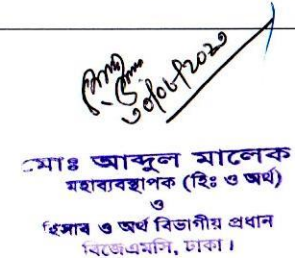 ৩০/০৮/২০২০
মোঃ আব্দুল মালেক
মহাব্যবস্থাপক (হিঃ ও অর্থ)
ও
হিসাব ও অর্থ বিভাগীয় প্রধান
বিজেএমসি, ঢাকা।